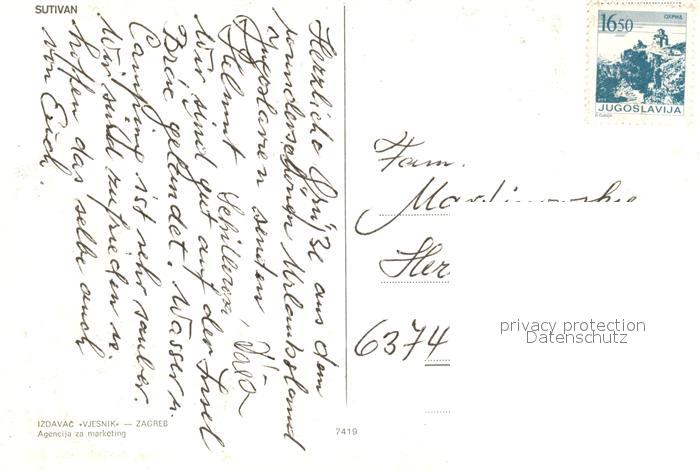 SUTIVAN
Herzliche Grüße aus dem
wunderschönen Urlaubsland
Jugoslawien senden
Helmut
Wir sind gut auf der Insel
Brač gelandet. Wasser u.
Camping ist sehr sauber.
Wir sind zufrieden u.
hoffen das selbe auch
von Euch.
1650
JUGOSLAVIJA
Fam.
6374
privacy protection
Datenschutz
IZDAVAČ »VJESNIK« — ZAGREB
Agencija za marketing
7419